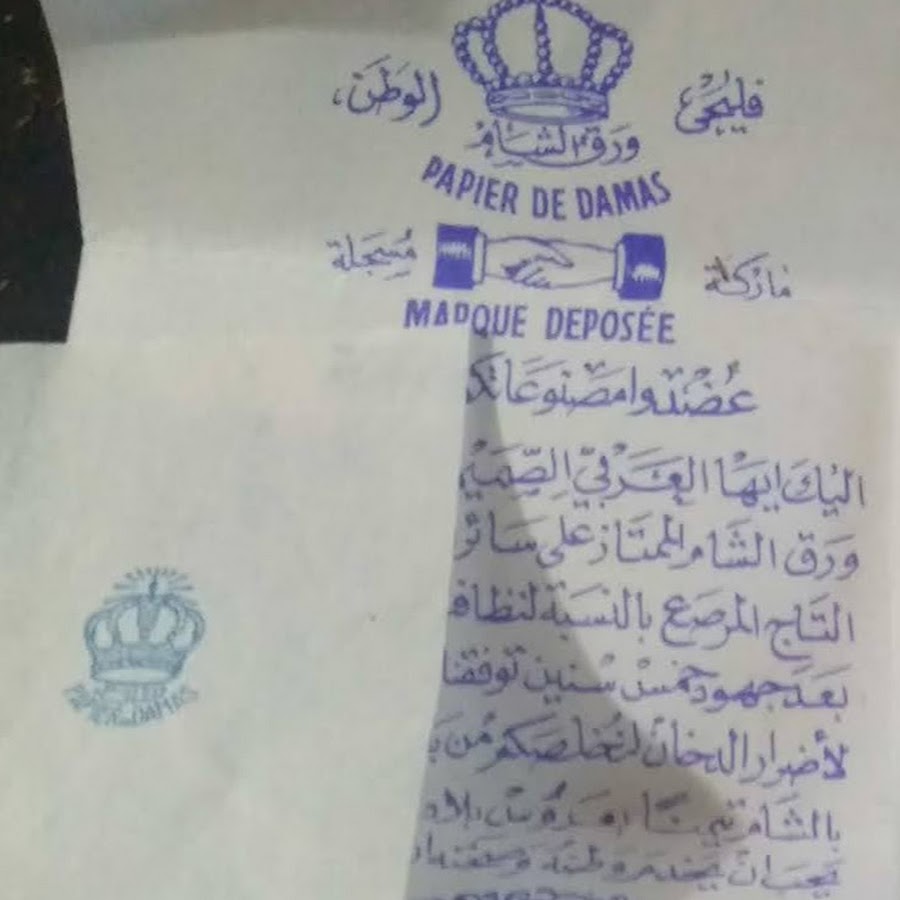 فليحيَ الوَطَن،
وَرَق الشَام
PAPIER DE DAMAS
مَاركَة مُسَجَلة
MARQUE DEPOSÉE
عُضْدُوا مَصْنوعَاتكـ
اليْكَ ايهَا العَرَبيّ الصَّميْم
وَرَق الشَام الممتَاز على سَائر
التَاج المرصَع بالنسبَة لنظافـ
بَعدَ جهود خمسْ سْنين توفقنا
لأضرار الدخان لنُخلصَكم مْن
بالشَام
يجب انْ يخدم وطنه
PAPIER DAMAS